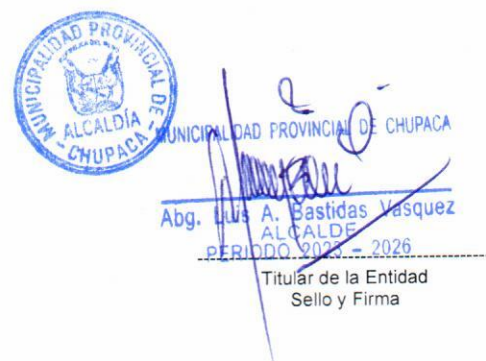 MUNICIPALIDAD PROVINCIAL DE - CHUPACA -
REPUBLICA DEL PERU
ALCALDÍA
MUNICIPALIDAD PROVINCIAL DE CHUPACA
Abg. Luis A. Bastidas Vasquez
ALCALDE
PERIODO 2023 - 2026
Titular de la Entidad
Sello y Firma